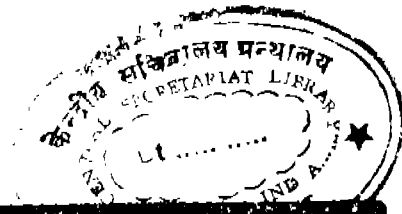 केन्द्रीय सचिवालय ग्रन्थालय
CENTRAL SECRETARIAT LIBRARY
INDIA